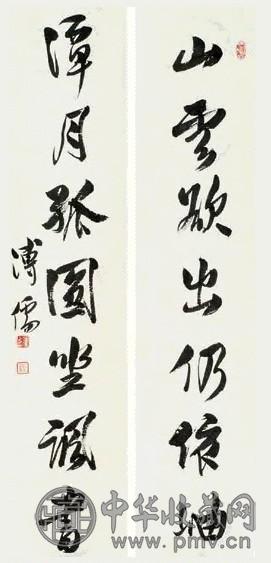 山雲欲出仍依
潭月孤圓坐諷書
溥儒
中华收藏网
www.pmv.cn